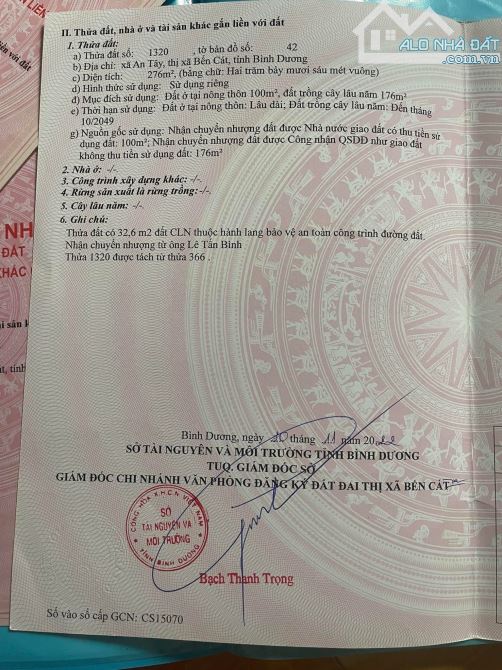 II. Thửa đất, nhà ở và tài sản khác gắn liền với đất
1. Thửa đất:
a) Thửa đất số: 1320 , tờ bản đồ số: 42
b) Địa chỉ: xã An Tây, thị xã Bến Cát, tỉnh Bình Dương
c) Diện tích: 276m², (bằng chữ: Hai trăm bảy mươi sáu mét vuông)
d) Hình thức sử dụng: Sử dụng riêng
đ) Mục đích sử dụng: Đất ở tại nông thôn 100m², đất trồng cây lâu năm 176m²
e) Thời hạn sử dụng: Đất ở tại nông thôn: Lâu dài; Đất trồng cây lâu năm: Đến tháng
10/2049
g) Nguồn gốc sử dụng: Nhận chuyển nhượng đất được Nhà nước giao đất có thu tiền sử
dụng đất: 100m²; Nhận chuyển nhượng đất được Công nhận QSDĐ như giao đất
không thu tiền sử dụng đất: 176m²
2. Nhà ở: -/-
3. Công trình xây dựng khác: -/-
4. Rừng sản xuất là rừng trồng: -/-
5. Cây lâu năm: -/-
6. Ghi chú:
Thửa đất có 32,6 m2 đất CLN thuộc hành lang bảo vệ an toàn công trình đường đất.
Nhận chuyển nhượng từ ông Lê Tấn Bình
Thửa 1320 được tách từ thửa 366 .
Bình Dương, ngày 20 tháng 11 năm 20
SỞ TÀI NGUYÊN VÀ MÔI TRƯỜNG TỈNH BÌNH DƯƠNG
TUQ. GIÁM ĐỐC SỞ
GIÁM ĐỐC CHI NHÁNH VĂN PHÒNG ĐĂNG KÝ ĐẤT ĐAI THỊ XÃ BẾN CÁT
CỘNG HÒA X.H.C.N VIỆT NAM
SỞ
TÀI NGUYÊN VÀ
MÔI TRƯỜNG
TỈNH BÌNH DƯƠNG
Bạch Thanh Trọng
Số vào sổ cấp GCN: CS15070
ALO NHÀ ĐẤT
.com.vn